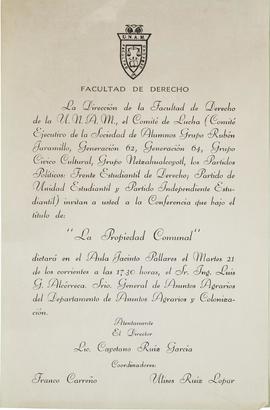 U.N.A.M.
FACULTAD DE DERECHO
La Dirección de la Facultad de Derecho
de la U. N. A. M., el Comité de Lucha (Comité
Ejecutivo de la Sociedad de Alumnos Grupo Rubén
Jaramillo, Generación 62, Generación 64, Grupo
Cívico Cultural, Grupo Netzahualcoyotl, los Partidos
Políticos: Frente Estudiantil de Derecho; Partido de
Unidad Estudiantil y Partido Independiente Estu-
diantil) invitan a usted a la Conferencia que bajo el
título de:
"La Propiedad Comunal"
dictará en el Aula Jacinto Pallares el Martes 21
de los corrientes a las 17.30 horas, el Sr. Ing. Luis
G. Alcérreca. Srio. General de Asuntos Agrarios
del Departamento de Asuntos Agrarios y Coloniza-
ción.
Atentamente
El Director
Lic. Cayetano Ruiz García
Coordinadores:
Franco Carreño Ulises Ruiz Lopar